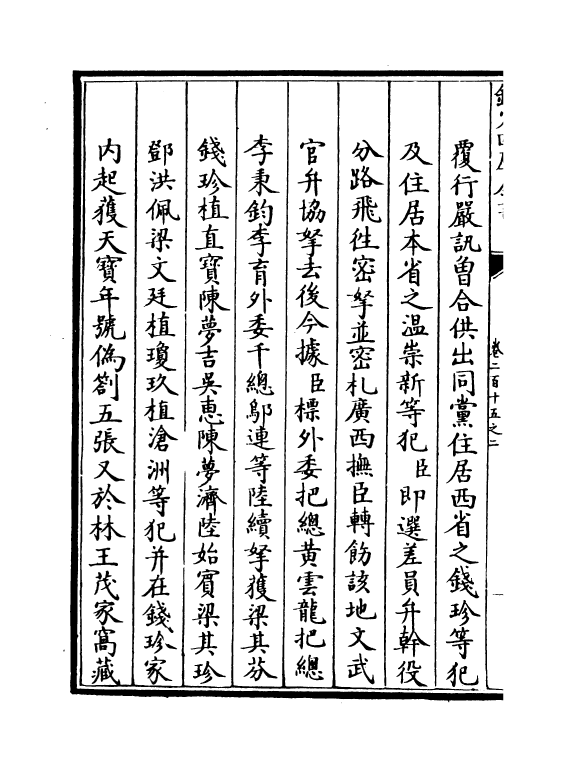 覆行嚴訊曽合供出同黨住居西省之錢珍等犯
及住居本省之温崇新等犯臣即選差員弁幹役
分路飛徃密拏並密札廣西撫臣轉飭該地文武
官弁協拏去後今據臣標外委把總黄雲龍把總
李秉鈞李育外委千總鄔連等陸續拏獲梁其芬
錢珍植直寳陳夢吉吳恵陳夢濟陸始賓梁其珍
鄧洪佩梁文廷植瓊玖植滄洲等犯并在錢珍家
内起獲天寳年號偽劄五張又於林王茂家窩藏
卷二百十五之二